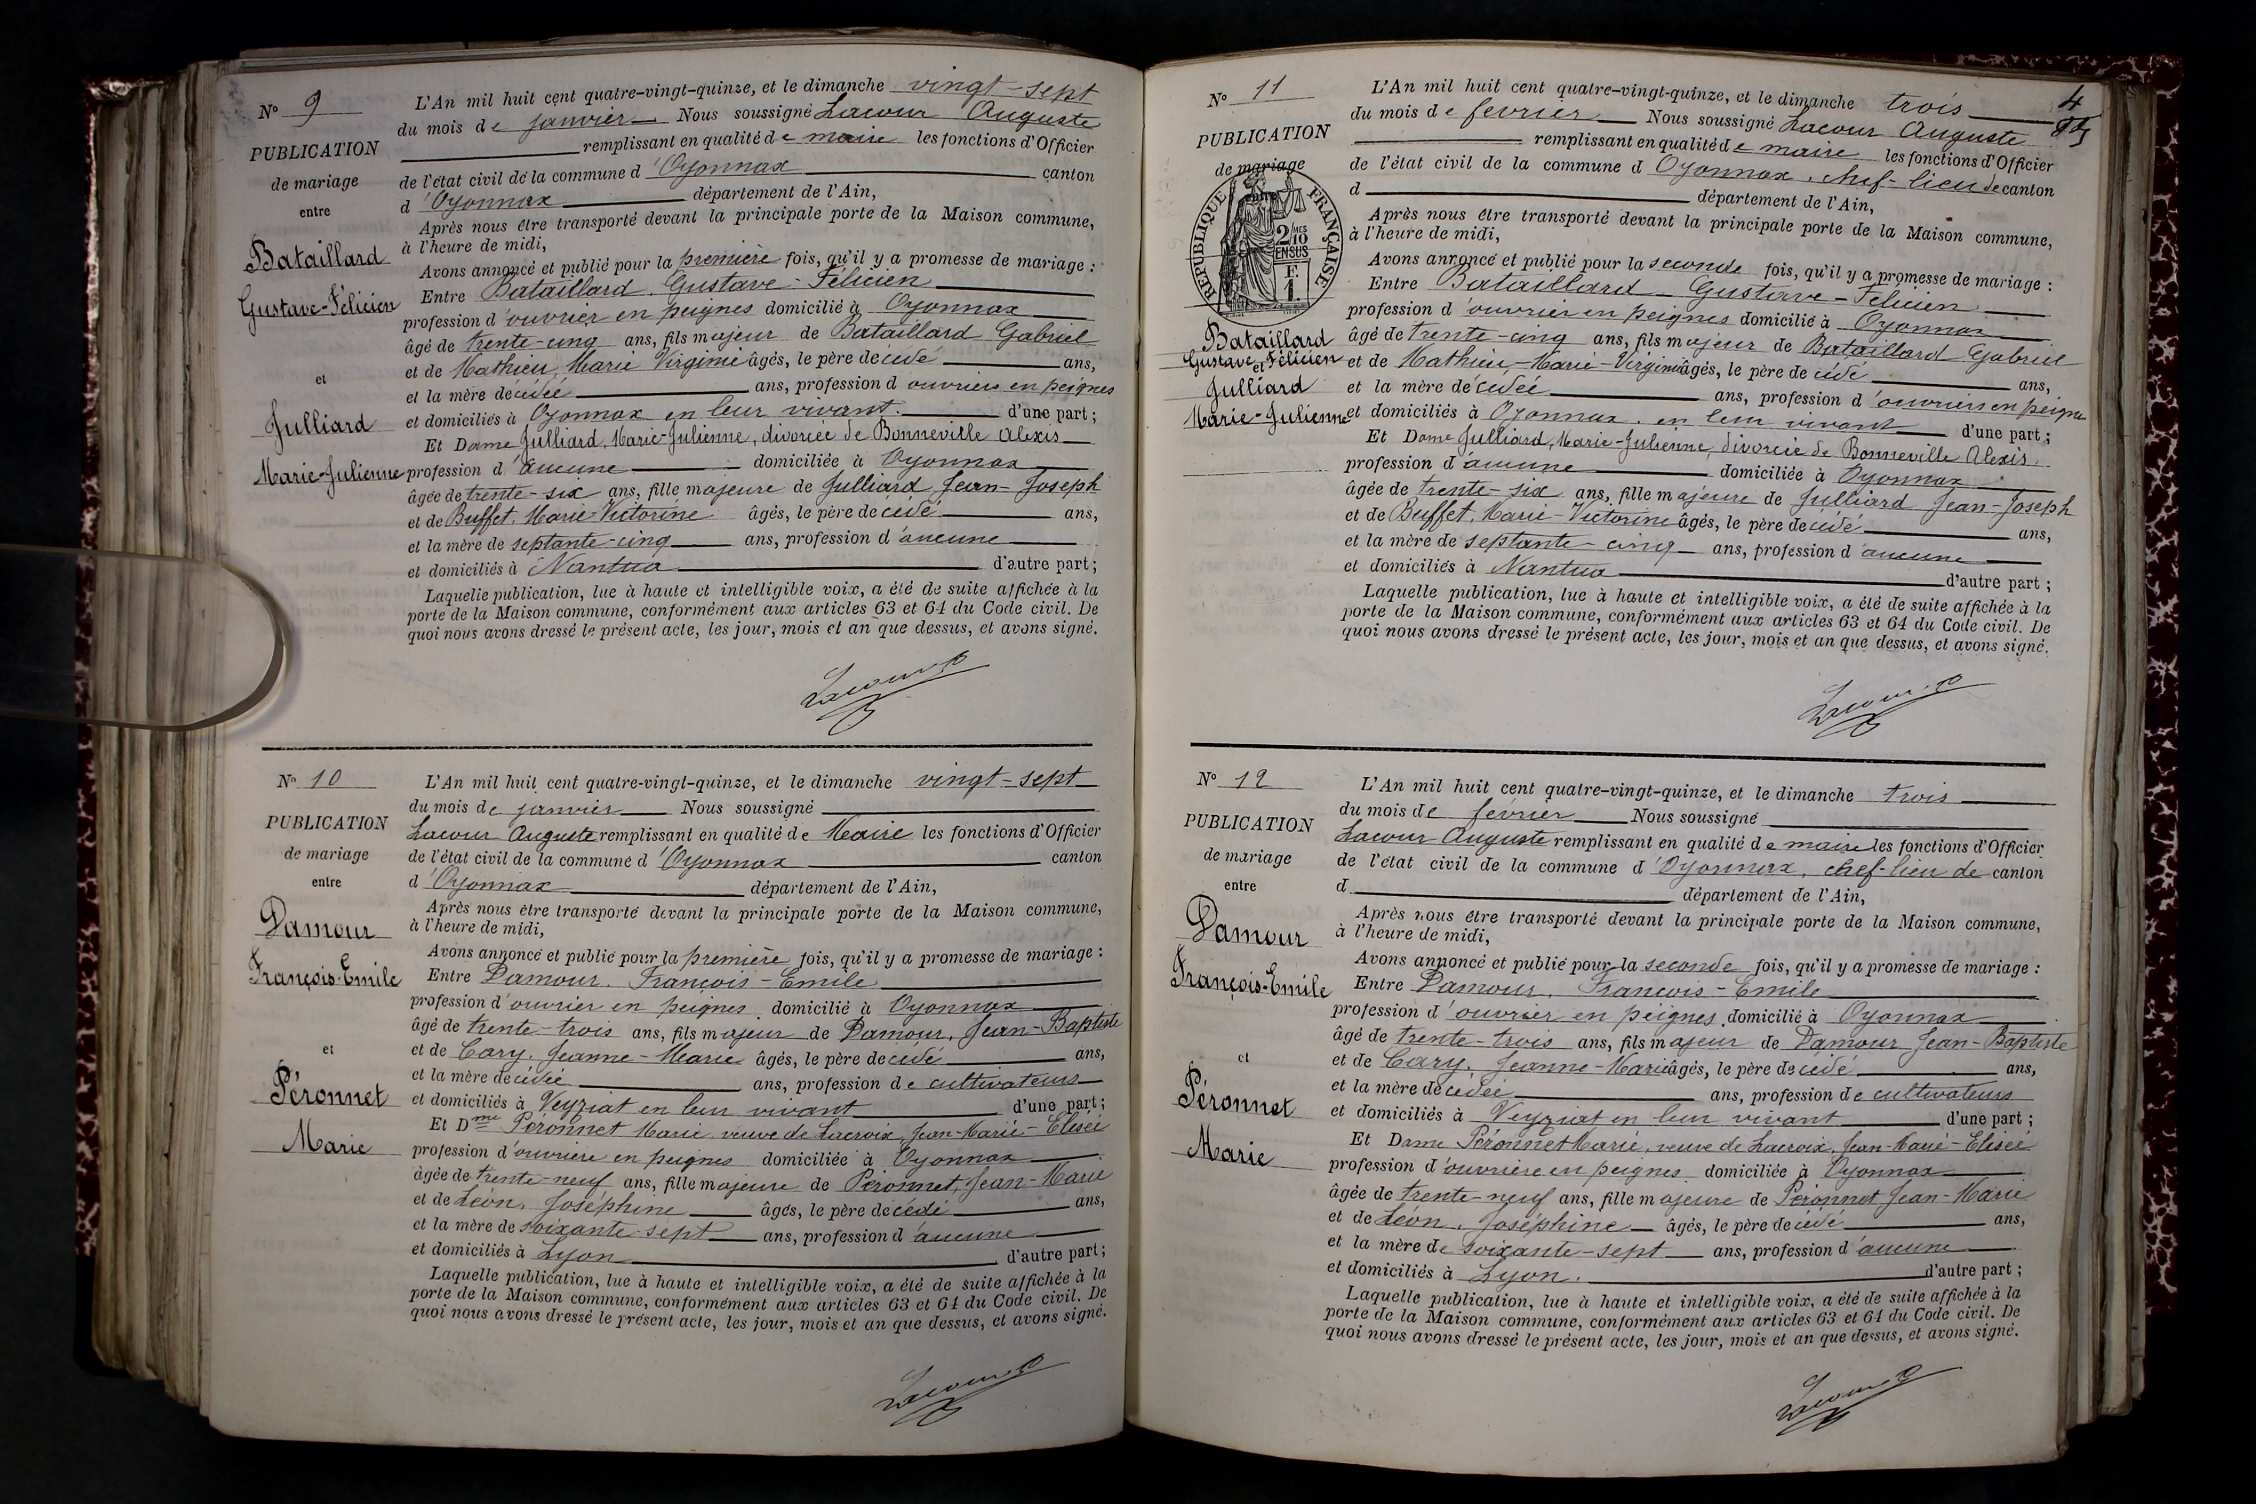 N° 9
PUBLICATION
de mariage
entre
Bataillard
Gustave-Félicien
et
Julliard
Marie-Julienne
L'An mil huit cent quatre-vingt-quinze, et le dimanche vingt-sept
du mois de janvier Nous soussigné Lacour Auguste
remplissant en qualité de maire les fonctions d'Officier
de l'état civil de la commune d'Oyonnax canton
d'Oyonnax département de l'Ain,
Après nous être transporté devant la principale porte de la Maison commune,
à l'heure de midi,
Avons annoncé et publié pour la première fois, qu'il y a promesse de mariage :
Entre Bataillard, Gustave-Félicien
profession d'ouvrier en peignes domicilié à Oyonnax
âgé de trente-cinq ans, fils majeur de Bataillard Gabriel
et de Mathieu, Marie Virginie âgés, le père décédé ans,
et la mère décédée ans, profession d'ouvriers en peignes
et domiciliés à Oyonnax en leur vivant. d'une part ;
Et Dame Julliard, Marie-Julienne, divorcée de Bonneville Alexis
profession d'aucune domiciliée à Oyonnax
âgée de trente-six ans, fille majeure de Julliard Jean-Joseph
et de Buffet, Marie-Victorine âgés, le père décédé ans,
et la mère de septante-cinq ans, profession d'aucune
et domiciliés à Nantua d'autre part ;
Laquelle publication, lue à haute et intelligible voix, a été de suite affichée à la
porte de la Maison commune, conformément aux articles 63 et 64 du Code civil. De
quoi nous avons dressé le présent acte, les jour, mois et an que dessus, et avons signé.
Lacour
N° 10
PUBLICATION
de mariage
entre
Damour
François-Emile
et
Péronnet
Marie
L'An mil huit cent quatre-vingt-quinze, et le dimanche vingt-sept
du mois de janvier Nous soussigné
Lacour Auguste remplissant en qualité de Maire les fonctions d'Officier
de l'état civil de la commune d'Oyonnax canton
d'Oyonnax département de l'Ain,
Après nous être transporté devant la principale porte de la Maison commune,
à l'heure de midi,
Avons annoncé et publié pour la première fois, qu'il y a promesse de mariage :
Entre Damour, François-Emile
profession d'ouvrier en peignes, domicilié à Oyonnax
âgé de trente-trois ans, fils majeur de Damour, Jean-Baptiste
et de Cary, Jeanne-Marie âgés, le père décédé ans,
et la mère décédée ans, profession de cultivateurs
et domiciliés à Veyziat en leur vivant d'une part ;
Et Dme Péronnet Marie veuve de Lacroix Jean-Marie-Elisée
profession d'ouvrière en peignes domiciliée à Oyonnax
âgée de trente-neuf ans, fille majeure de Péronnet, Jean-Marie
et de Léon, Joséphine âgés, le père décédé ans,
et la mère de soixante-sept ans, profession d'aucune
et domiciliés à Lyon d'autre part ;
Laquelle publication, lue à haute et intelligible voix, a été de suite affichée à la
porte de la Maison commune, conformément aux articles 63 et 64 du Code civil. De
quoi nous avons dressé le présent acte, les jour, mois et an que dessus, et avons signé.
Lacour
4
N° 11
PUBLICATION
de mariage
RÉPUBLIQUE FRANÇAISE
2/10MES
EN SUS
1F.
Bataillard
Gustave-Félicien
et
Julliard
Marie-Julienne
L'An mil huit cent quatre-vingt-quinze, et le dimanche trois
du mois de février Nous soussigné Lacour Auguste
remplissant en qualité de maire les fonctions d'Officier
de l'état civil de la commune d'Oyonnax, chef-lieu de canton
d département de l'Ain,
Après nous être transporté devant la principale porte de la Maison commune,
à l'heure de midi,
Avons annoncé et publié pour la seconde fois, qu'il y a promesse de mariage :
Entre Bataillard Gustave-Félicien
profession d'ouvrier en peignes domicilié à Oyonnax
âgé de trente-cinq ans, fils majeur de Bataillard Gabriel
et de Mathieu-Marie-Virginie âgés, le père décédé ans,
et la mère décédée ans, profession d'ouvriers en peigne
et domiciliés à Oyonnax, en leur vivant d'une part ;
Et Dame Julliard, Marie-Julienne, divorcée de Bonneville Alexis.
profession d'aucune domiciliée à Oyonnax
âgée de trente-six ans, fille majeure de Julliard Jean-Joseph
et de Buffet, Marie-Victorine âgés, le père décédé ans,
et la mère de septante-cinq ans, profession d'aucune
et domiciliés à Nantua d'autre part ;
Laquelle publication, lue à haute et intelligible voix, a été de suite affichée à la
porte de la Maison commune, conformément aux articles 63 et 64 du Code civil. De
quoi nous avons dressé le présent acte, les jour, mois et an que dessus, et avons signé.
Lacour
N° 12
PUBLICATION
de mariage
entre
Damour
François-Emile
et
Péronnet
Marie
L'An mil huit cent quatre-vingt-quinze, et le dimanche trois
du mois de février Nous soussigné
Lacour Auguste remplissant en qualité de maire les fonctions d'Officier
de l'état civil de la commune d'Oyonnax, chef-lieu de canton
d département de l'Ain,
Après nous être transporté devant la principale porte de la Maison commune,
à l'heure de midi,
Avons annoncé et publié pour la seconde fois, qu'il y a promesse de mariage :
Entre Damour, François-Emile
profession d'ouvrier en peignes, domicilié à Oyonnax
âgé de trente-trois ans, fils majeur de Damour Jean-Baptiste
et de Cary, Jeanne-Marie âgés, le père décédé ans,
et la mère décédée ans, profession de cultivateurs
et domiciliés à Veyziat en leur vivant d'une part ;
Et Dame Péronnet Marie, veuve de Lacroix, Jean-Marie-Elisée
profession d'ouvrière en peignes domiciliée à Oyonnax
âgée de trente-neuf ans, fille majeure de Péronnet Jean-Marie
et de Léon, Joséphine âgés, le père décédé ans,
et la mère de soixante-sept ans, profession d'aucune
et domiciliés à Lyon. d'autre part ;
Laquelle publication, lue à haute et intelligible voix, a été de suite affichée à la
porte de la Maison commune, conformément aux articles 63 et 64 du Code civil. De
quoi nous avons dressé le présent acte, les jour, mois et an que dessus, et avons signé.
Lacour